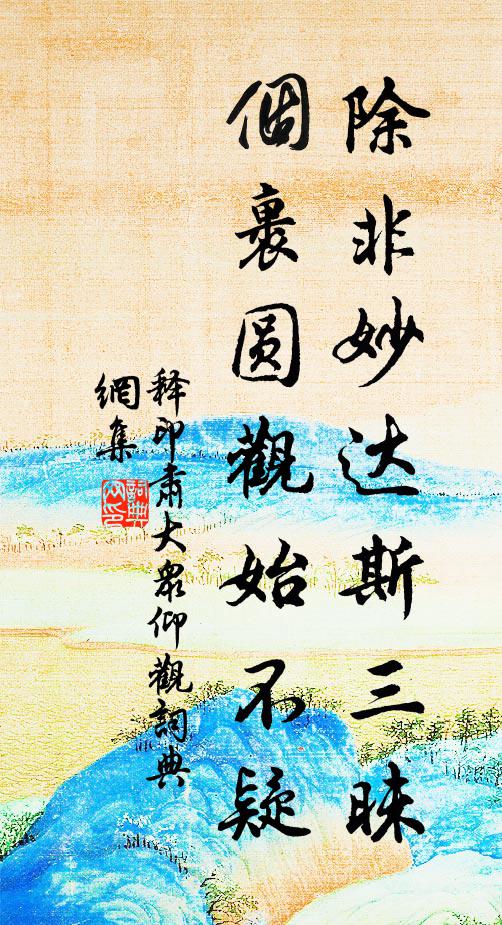 除非妙达斯三昧
個裏圆觀始不疑
释印肅大眾仰觀詞典
網集